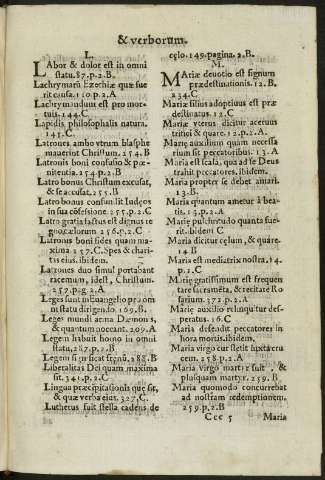 & verborum.
L.
Labor & dolor est in omni
statu. 87. p. 2. B.
Lachrymarũ Ezechiæ quæ fue
rit causa. 110. p. 2. A
Lachrymandum est pro mor-
tuis. 144. C.
Lapidis philosophalis natura.
141. C.
Latrones ambo vtrum blasphe
mauerint Christum. 254. B
Latronis boni confusio & pœ-
nitentia. 254. p. 2. B
Latro bonus Christum excusat,
& se accusat. 255. B
Latro bonus consulit Iudæos
in sua cõfessione. 255. p. 2. C
Latro gratiæ factus est dignus re
gno cælorum 256. p. 2. C
Latronis boni fides quam ma-
xima. 257. C. Spes & chari-
tas eius. ibidem.
Latrones duo simul portabant
racemum, idest, Christum.
257. pag. 2. A
Leges sunt in Euangelio pro om
ni statu dirigendo. 109. B.
Leges mundi arma Dæmonis,
& quantum noceant. 209. A
Legem habuit homo in omni
statu. 287. p. 2. B
Legem significat signũ. 288. B
Liberalitas Dei quam maxima
sit. 341. p. 2. C
Lingua præcipitationis quæ sit,
& quæ verba eius. 327. C.
Lutherus fuit stella cadens de
cęlo. 149. pagina. 2. B.
M.
Mariæ deuotio est signum
prædestinationis. 12. B.
& 234. C
Mariæ filius adoptiuus est præ
destinatus. 12. C
Mariæ vterus dicitur aceruus
tritici & quare. 12. p. 2. A.
Marię auxilium quam necessa
rium sit peccatoribus. 13. A
Maria est scala, qua ad se Deus
trahit peccatores. ibidem.
Maria propter se debet amari.
13. B
Maria quantum ametur à bea-
tis. 13. p. 2. A
Mariæ pulchritudo quanta fue-
rit. ibidem C
Maria dicitur cęlum, & quare.
14. B
Maria est mediatrix nostra. 14.
p. 2. C
Marię gratissimum est frequen
tare sacramẽta, & recitare Ro
sarium. 172. p. 2. A.
Mariæ auxilio relinquitur des-
peratus. 16. C
Maria defendit peccatores in
hora mortis. ibidem.
Maria virgo cur stetit iuxta cru
cem. 258. p. 2. A
Maria virgo martyr fuit, &
plusquam martyr. 259. B.
Maria quomodo concurrebat
ad nostram redemptionem.
259. p. 2. B
Ccc 5 Maria